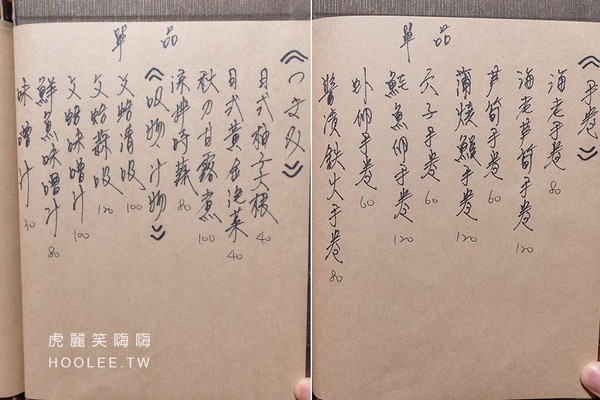 單品
《つまみ》
日式柚子大根 40
日式黃金泡菜 40
秋刀甘露煮 100
涼拌時蔬 80
《吸物、汁物》
文蛤清吸 100
文蛤蒜吸 120
文蛤味噌汁 100
鮮魚味噌汁 80
味噌汁 30
虎麗笑嗨嗨
HOOLEE.TW
單品
《手卷》
海老手卷 80
海老芦筍手卷 120
芦筍手卷 60
蒲燒鰻手卷 120
穴子手卷 60
鮭魚卵手卷 120
卵手卷 60
醬漬鉄火手卷 80